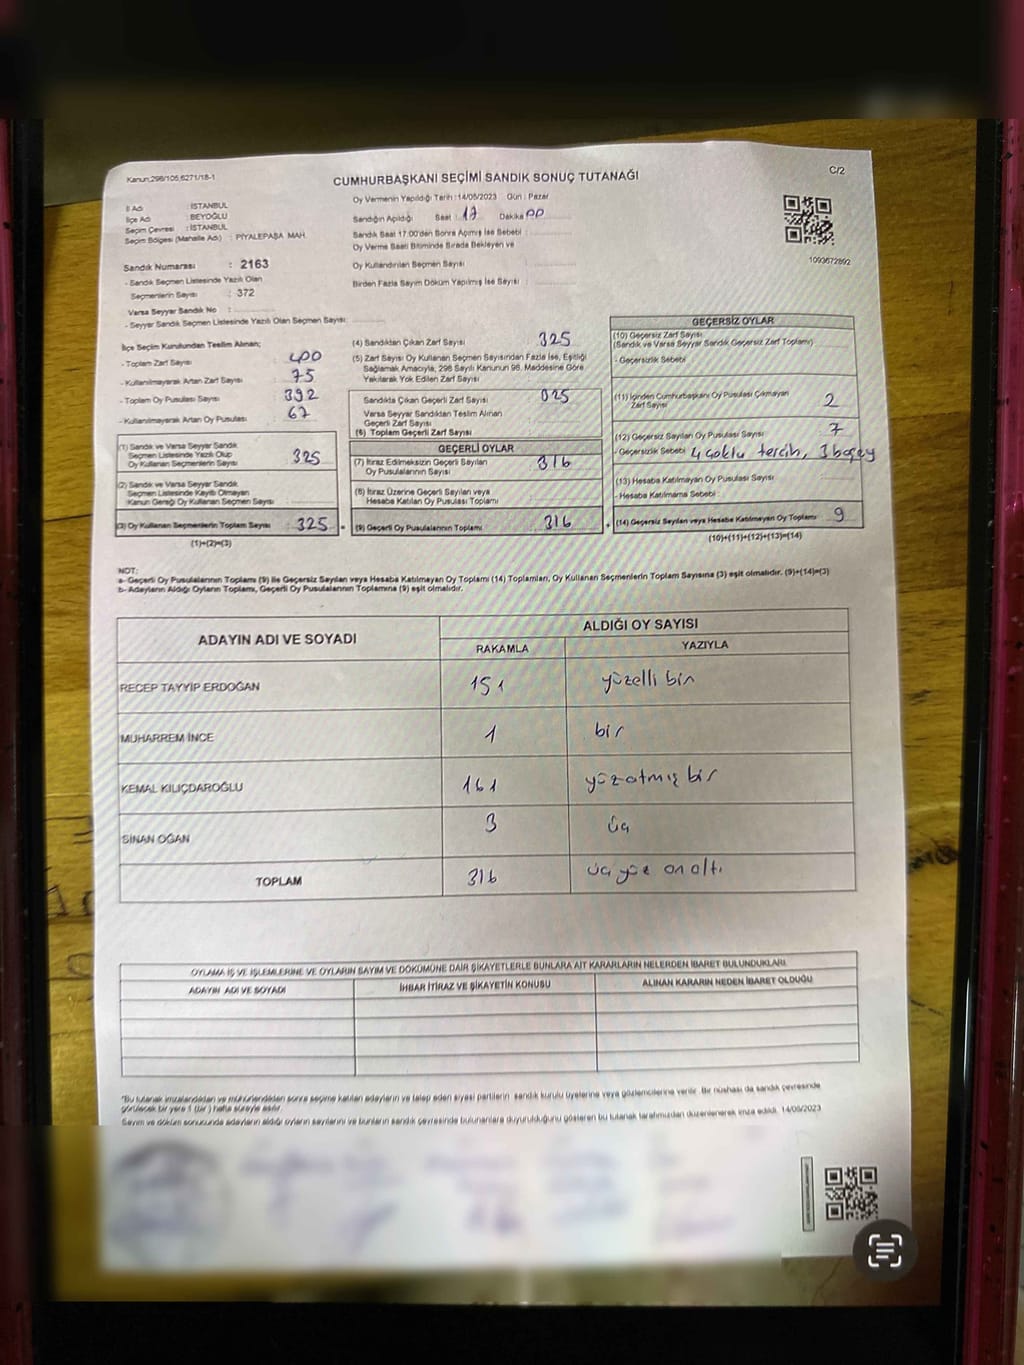 Kanun:298/105,6271/18-1
C/2
CUMHURBAŞKANI SEÇİMİ SANDIK SONUÇ TUTANAĞI
İl Adı : İSTANBUL
İlçe Adı : BEYOĞLU
Seçim Çevresi : İSTANBUL
Seçim Bölgesi (Mahalle Adı) : PİYALEPAŞA MAH.
Sandık Numarası : 2163
- Sandık Seçmen Listesinde Yazılı Olan
Seçmenlerin Sayısı : 372
Varsa Seyyar Sandık No :
- Seyyar Sandık Seçmen Listesinde Yazılı Olan Seçmen Sayısı:
Oy Vermenin Yapıldığı Tarih :14/05/2023 Gün : Pazar
Sandığın Açıldığı Saat : 17 Dakika 00
Sandık Saat 17:00'den Sonra Açılmış İse Sebebi :
Oy Verme Saati Bitiminde Sırada Bekleyen ve
Oy Kullandırılan Seçmen Sayısı
Birden Fazla Sayım Döküm Yapılmış İse Sayısı :
1093672892
İlçe Seçim Kurulundan Teslim Alınan;
- Toplam Zarf Sayısı 400
- Kullanılmayarak Artan Zarf Sayısı 75
- Toplam Oy Pusulası Sayısı 392
- Kullanılmayarak Artan Oy Pusulası 67
(1) Sandık ve Varsa Seyyar Sandık
Seçmen Listesinde Yazılı Olup
Oy Kullanan Seçmenlerin Sayısı 325
(2) Sandık ve Varsa Seyyar Sandık
Seçmen Listesinde Kayıtlı Olmayan
Kanun Gereği Oy Kullanan Seçmen Sayısı
(3) Oy Kullanan Seçmenlerin Toplam Sayısı 325
(1)+(2)=(3)
(4) Sandıktan Çıkan Zarf Sayısı 325
(5) Zarf Sayısı Oy Kullanan Seçmen Sayısından Fazla İse, Eşitliği
Sağlamak Amacıyla, 298 Sayılı Kanunun 98. Maddesine Göre
Yakılarak Yok Edilen Zarf Sayısı
Sandıkta Çıkan Geçerli Zarf Sayısı 325
Varsa Seyyar Sandıktan Teslim Alınan
Geçerli Zarf Sayısı
(6) Toplam Geçerli Zarf Sayısı
GEÇERLİ OYLAR
(7) İtiraz Edilmeksizin Geçerli Sayılan
Oy Pusulalarının Sayısı 316
(8) İtiraz Üzerine Geçerli Sayılan veya
Hesaba Katılan Oy Pusulası Toplamı
= (9) Geçerli Oy Pusulalarının Toplamı 316
GEÇERSİZ OYLAR
(10) Geçersiz Zarf Sayısı
(Sandık ve Varsa Seyyar Sandık Geçersiz Zarf Toplamı)
- Geçersizlik Sebebi
(11) İçinden Cumhurbaşkanı Oy Pusulası Çıkmayan
Zarf Sayısı 2
(12) Geçersiz Sayılan Oy Pusulası Sayısı 7
- Geçersizlik Sebebi 4 çoklu tercih, 3 boşey
(13) Hesaba Katılmayan Oy Pusulası Sayısı
- Hesaba Katılmama Sebebi :
+ (14) Geçersiz Sayılan veya Hesaba Katılmayan Oy Toplamı 9
(10)+(11)+(12)+(13)=(14)
NOT:
a- Geçerli Oy Pusulalarının Toplamı (9) ile Geçersiz Sayılan veya Hesaba Katılmayan Oy Toplamı (14) Toplamları, Oy Kullanan Seçmenlerin Toplam Sayısına (3) eşit olmalıdır. (9)+(14)=(3)
b- Adayların Aldığı Oyların Toplamı, Geçerli Oy Pusulalarının Toplamına (9) eşit olmalıdır.
ADAYIN ADI VE SOYADI
ALDIĞI OY SAYISI
RAKAMLA YAZIYLA
RECEP TAYYİP ERDOĞAN 151 yüzelli bir
MUHARREM İNCE 1 bir
KEMAL KILIÇDAROĞLU 161 yüzatmış bir
SİNAN OĞAN 3 üç
TOPLAM 316 üç yüz on altı
OYLAMA İŞ VE İŞLEMLERİNE VE OYLARIN SAYIM VE DÖKÜMÜNE DAİR ŞİKAYETLERLE BUNLARA AİT KARARLARIN NELERDEN İBARET BULUNDUKLARI
ADAYIN ADI VE SOYADI İHBAR İTİRAZ VE ŞİKAYETİN KONUSU ALINAN KARARIN NEDEN İBARET OLDUĞU
*Bu tutanak imzalandıktan ve mühürlendikten sonra seçime katılan adayların ve talep eden siyasi partilerin sandık kurulu üyelerine veya gözlemcilerine verilir. Bir nüshası da sandık çevresinde
görülecek bir yere 1 (bir) hafta süreyle asılır.
Sayım ve döküm sonucunda adayların aldığı oyların sayılarını ve bunların sandık çevresinde bulunanlara duyurulduğunu gösteren bu tutanak tarafımızdan düzenlenerek imza edildi. 14/05/2023